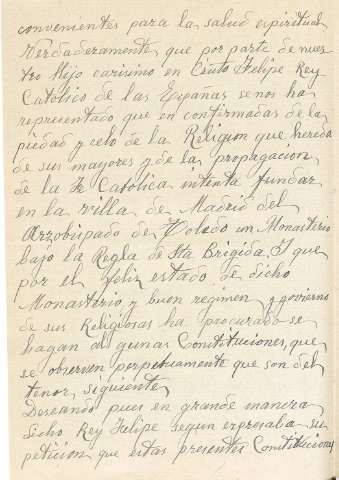 convenientes para la salud espiritual
Verdaderamente que por parte de nues
tro Hijo carisimo en Cristo Felipe Rey
Catolico de las Españas se nos ha
representado que en confirmadas de la
piedad y celo de la Religion que hereda
de sus mayores y de la propagacion
de la Fe Catolica intenta fundar
en la villa de Madrid del
Arzobispado de Toledo un Monasterio
bajo la Regla de Sta Brigida, Y que
por el feliz estado de dicho
Monasterio y buen regimen y govierno
de sus Religiosas ha procurado se
hagan algunas Constituciones, que
se observen perpetuamente que son del
tenor siguiente
Deseando pues en grande manera
dicho Rey Felipe segun expresaba su
peticion que estas presentes Constituciones